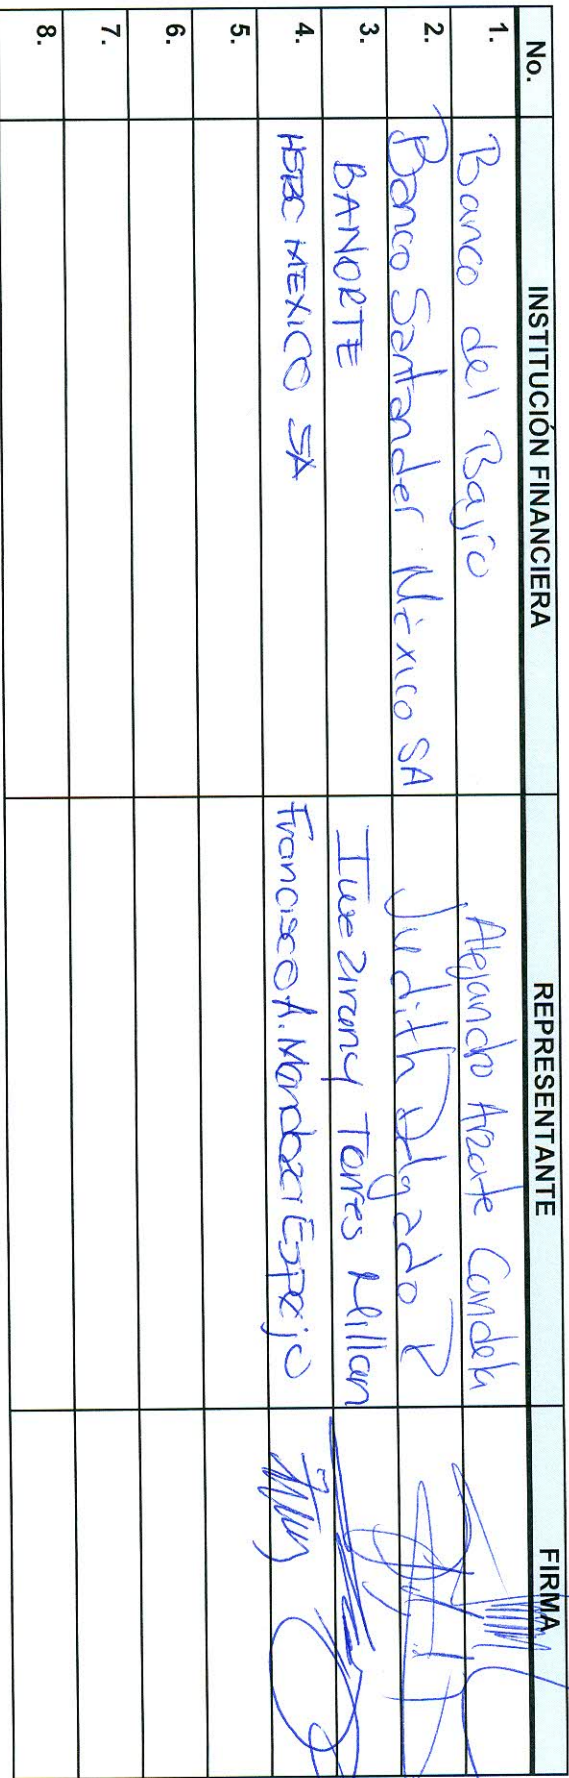 No. INSTITUCIÓN FINANCIERA REPRESENTANTE FIRMA
1. Banco del Bajío Alejandro Arzate Candela
2. Banco Santander México SA Judith Delgado R
3. BANORTE Torres Millan
4. HSBC MEXICO SA Francisco A. Mendoza Espejo
5.
6.
7.
8.